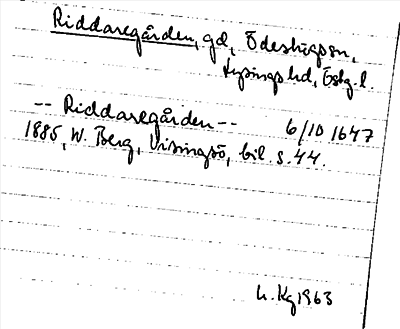 Riddaregården, gd, Ödeshögs sn,
Lysings hd, Östg. l.
-- Riddaregården -- 6/10 1647
1885, W. Berg, Visingsö, bil. s. 44.
h. Kg 1963